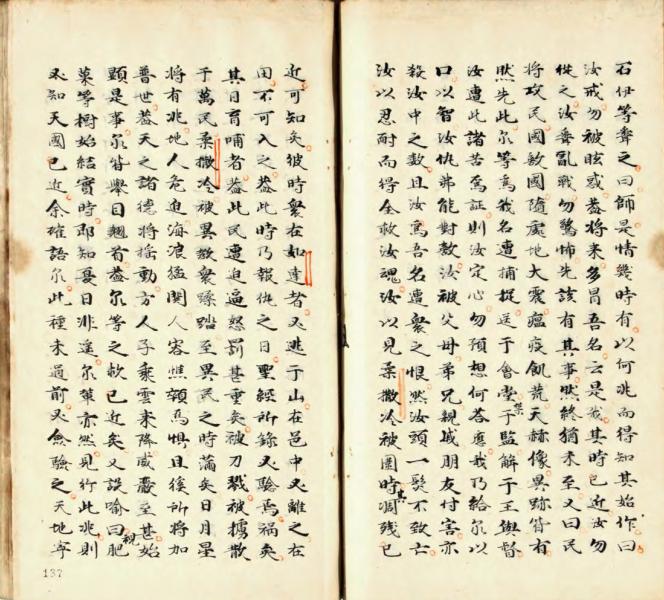 石伊等聱之曰師是情幾時有以何兆而得知其始作曰
汝戒勿被眩惑蓋將来多冒吾名云是我其時已近汝勿
從之汝聱亂戰勿驚怖先該有其事然終猶未至又曰民
將攻民國敵國隨處地大震瘟疫飢荒天赫像異跡皆有
然先此尔等為我名遭捕捉送于會堂于監解于王與督
汝遭此諸苦為証則汝定心勿預想何答應我乃給尔以
口以智汝仇弗能對敖汝被父母弟兄親戚朋友付害亦
殺汝中之数且汝為吾名遭衆之恨然汝頭一髮不致亡
汝以忍耐而得全救汝魂汝以見柔撒冷被圍時其凋残已
近可知矣彼時衆在如達者必逃于山在邑中必離之在
田不可入之蓋此時乃報仇之日聖經所錄必驗焉禍矣
其日育哺者蓋此民遭迫逼怒罰甚重矣被刀戮被擄散
于萬民柔撒冷被異教衆蹂踏至異民之時滿矣日月星
將有兆地人危迫海浪猛閙人容憔顇為惧且後所將加
普世蓋天之諸德將搖動方人子乘雲来降威嚴至甚始
顯是事尔皆舉目翹首蓋尔等之軟已近矣又設喻曰親肥
菓等樹始結實時即知夏日非遥尔輩亦然見行此兆則
必知天國已近余確語尔此種未過前必念驗之天地寧
137